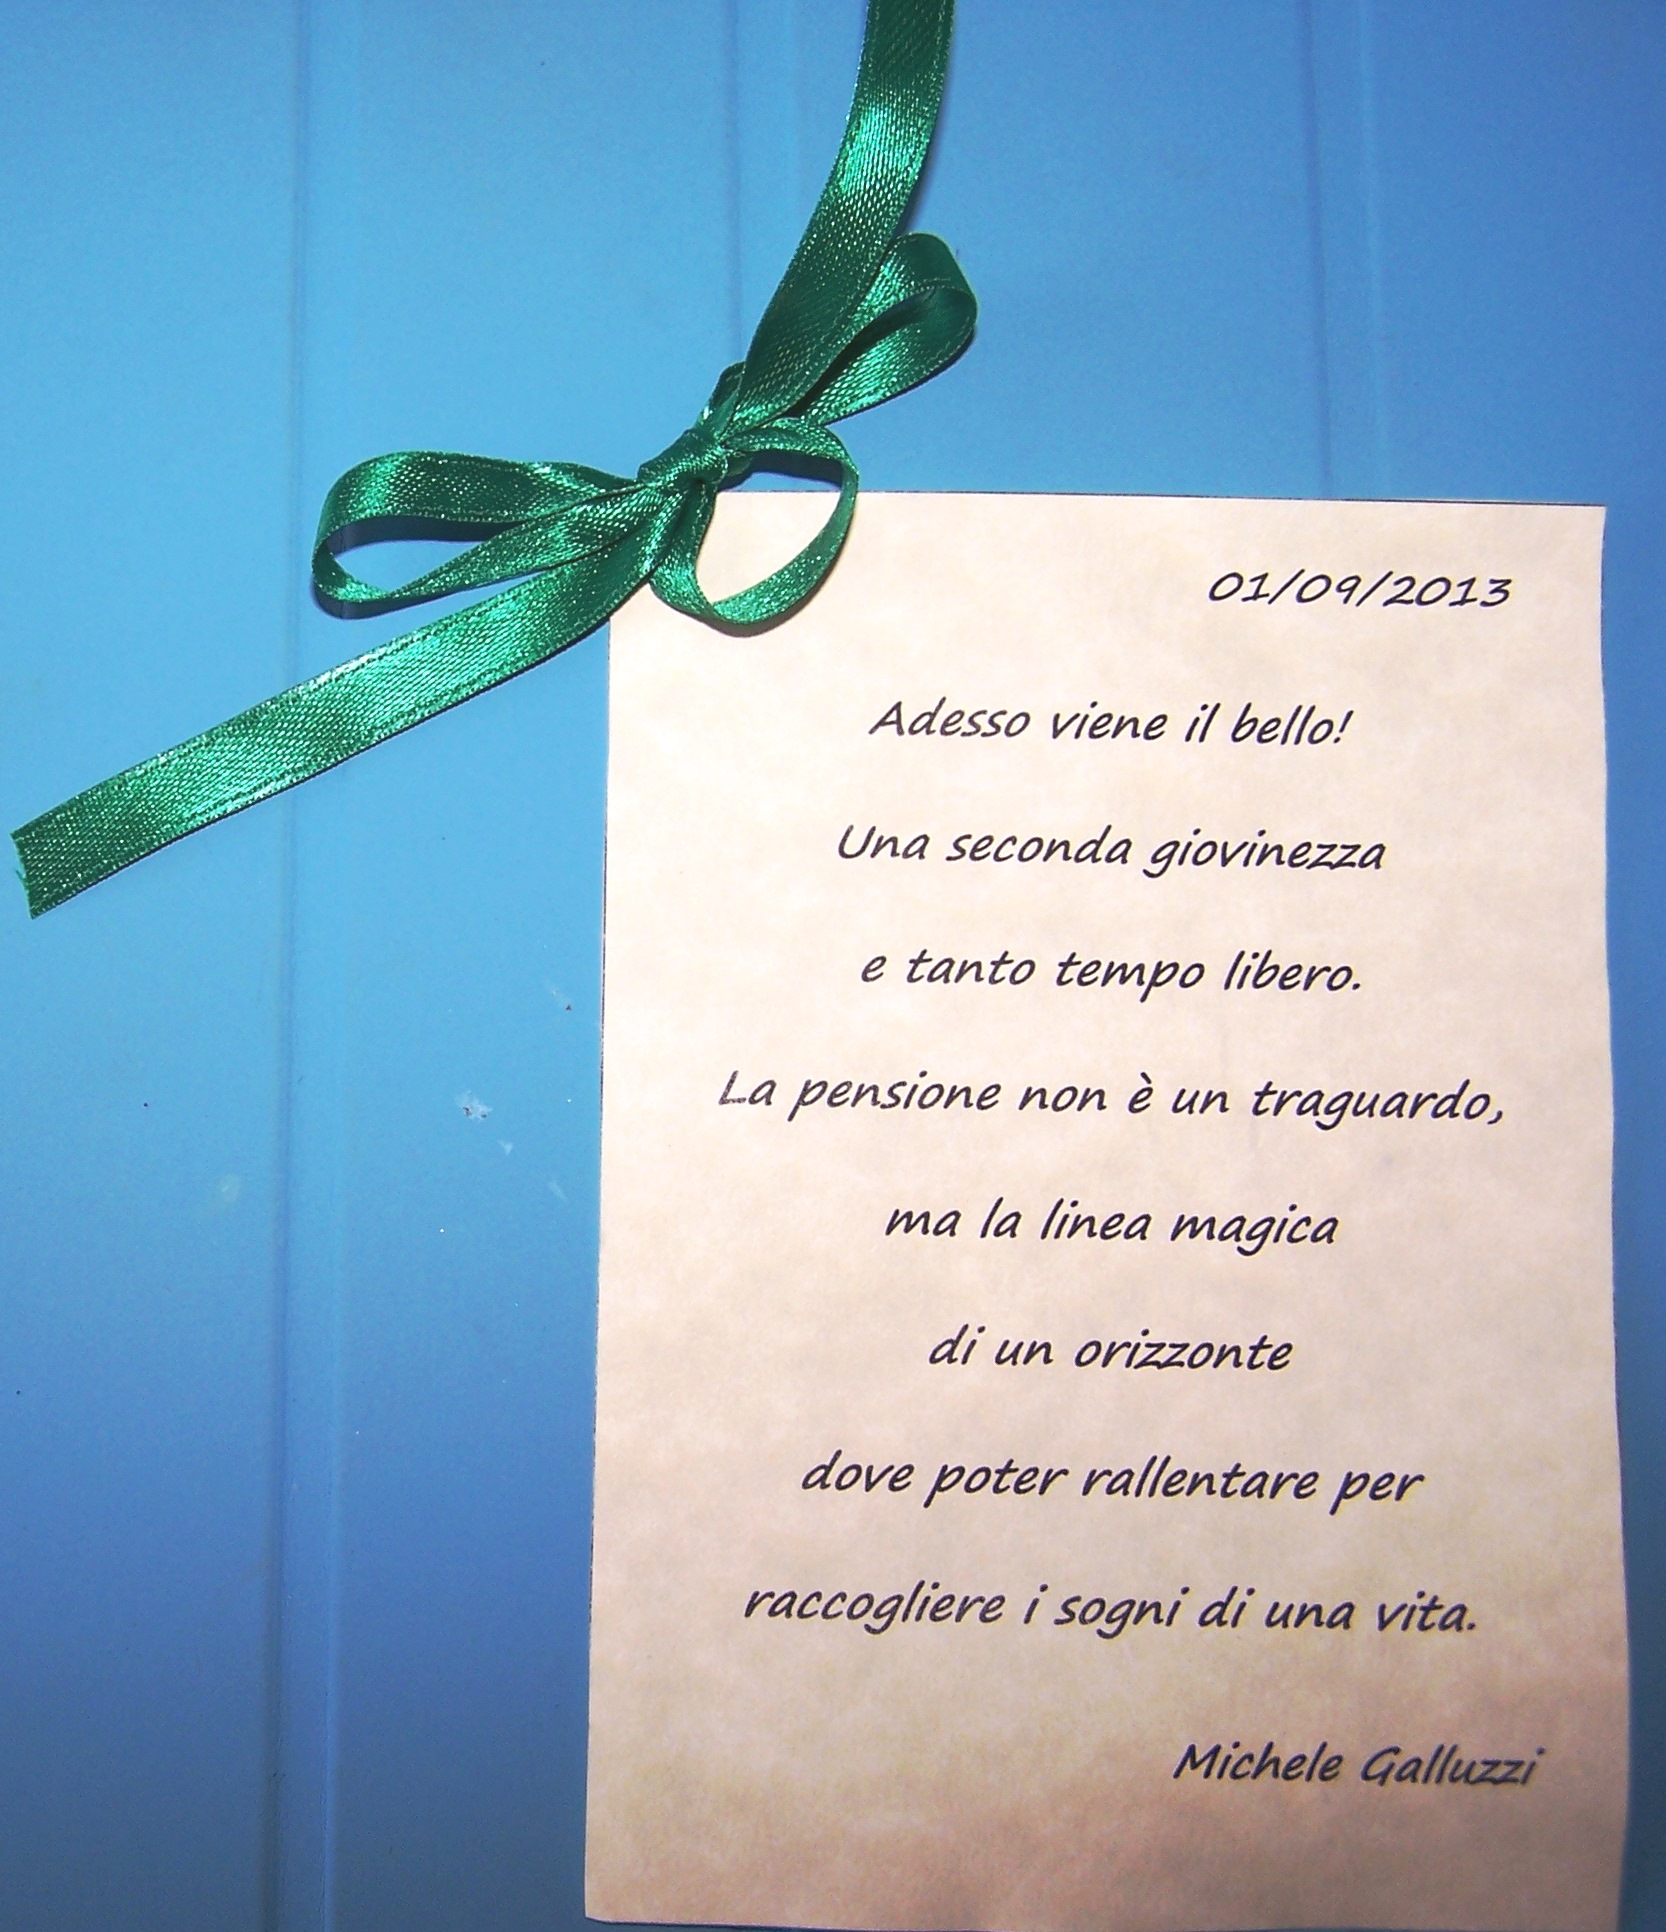 01/09/2013
Adesso viene il bello!
Una seconda giovinezza
e tanto tempo libero.
La pensione non è un traguardo,
ma la linea magica
di un orizzonte
dove poter rallentare per
raccogliere i sogni di una vita.
Michele Galluzzi